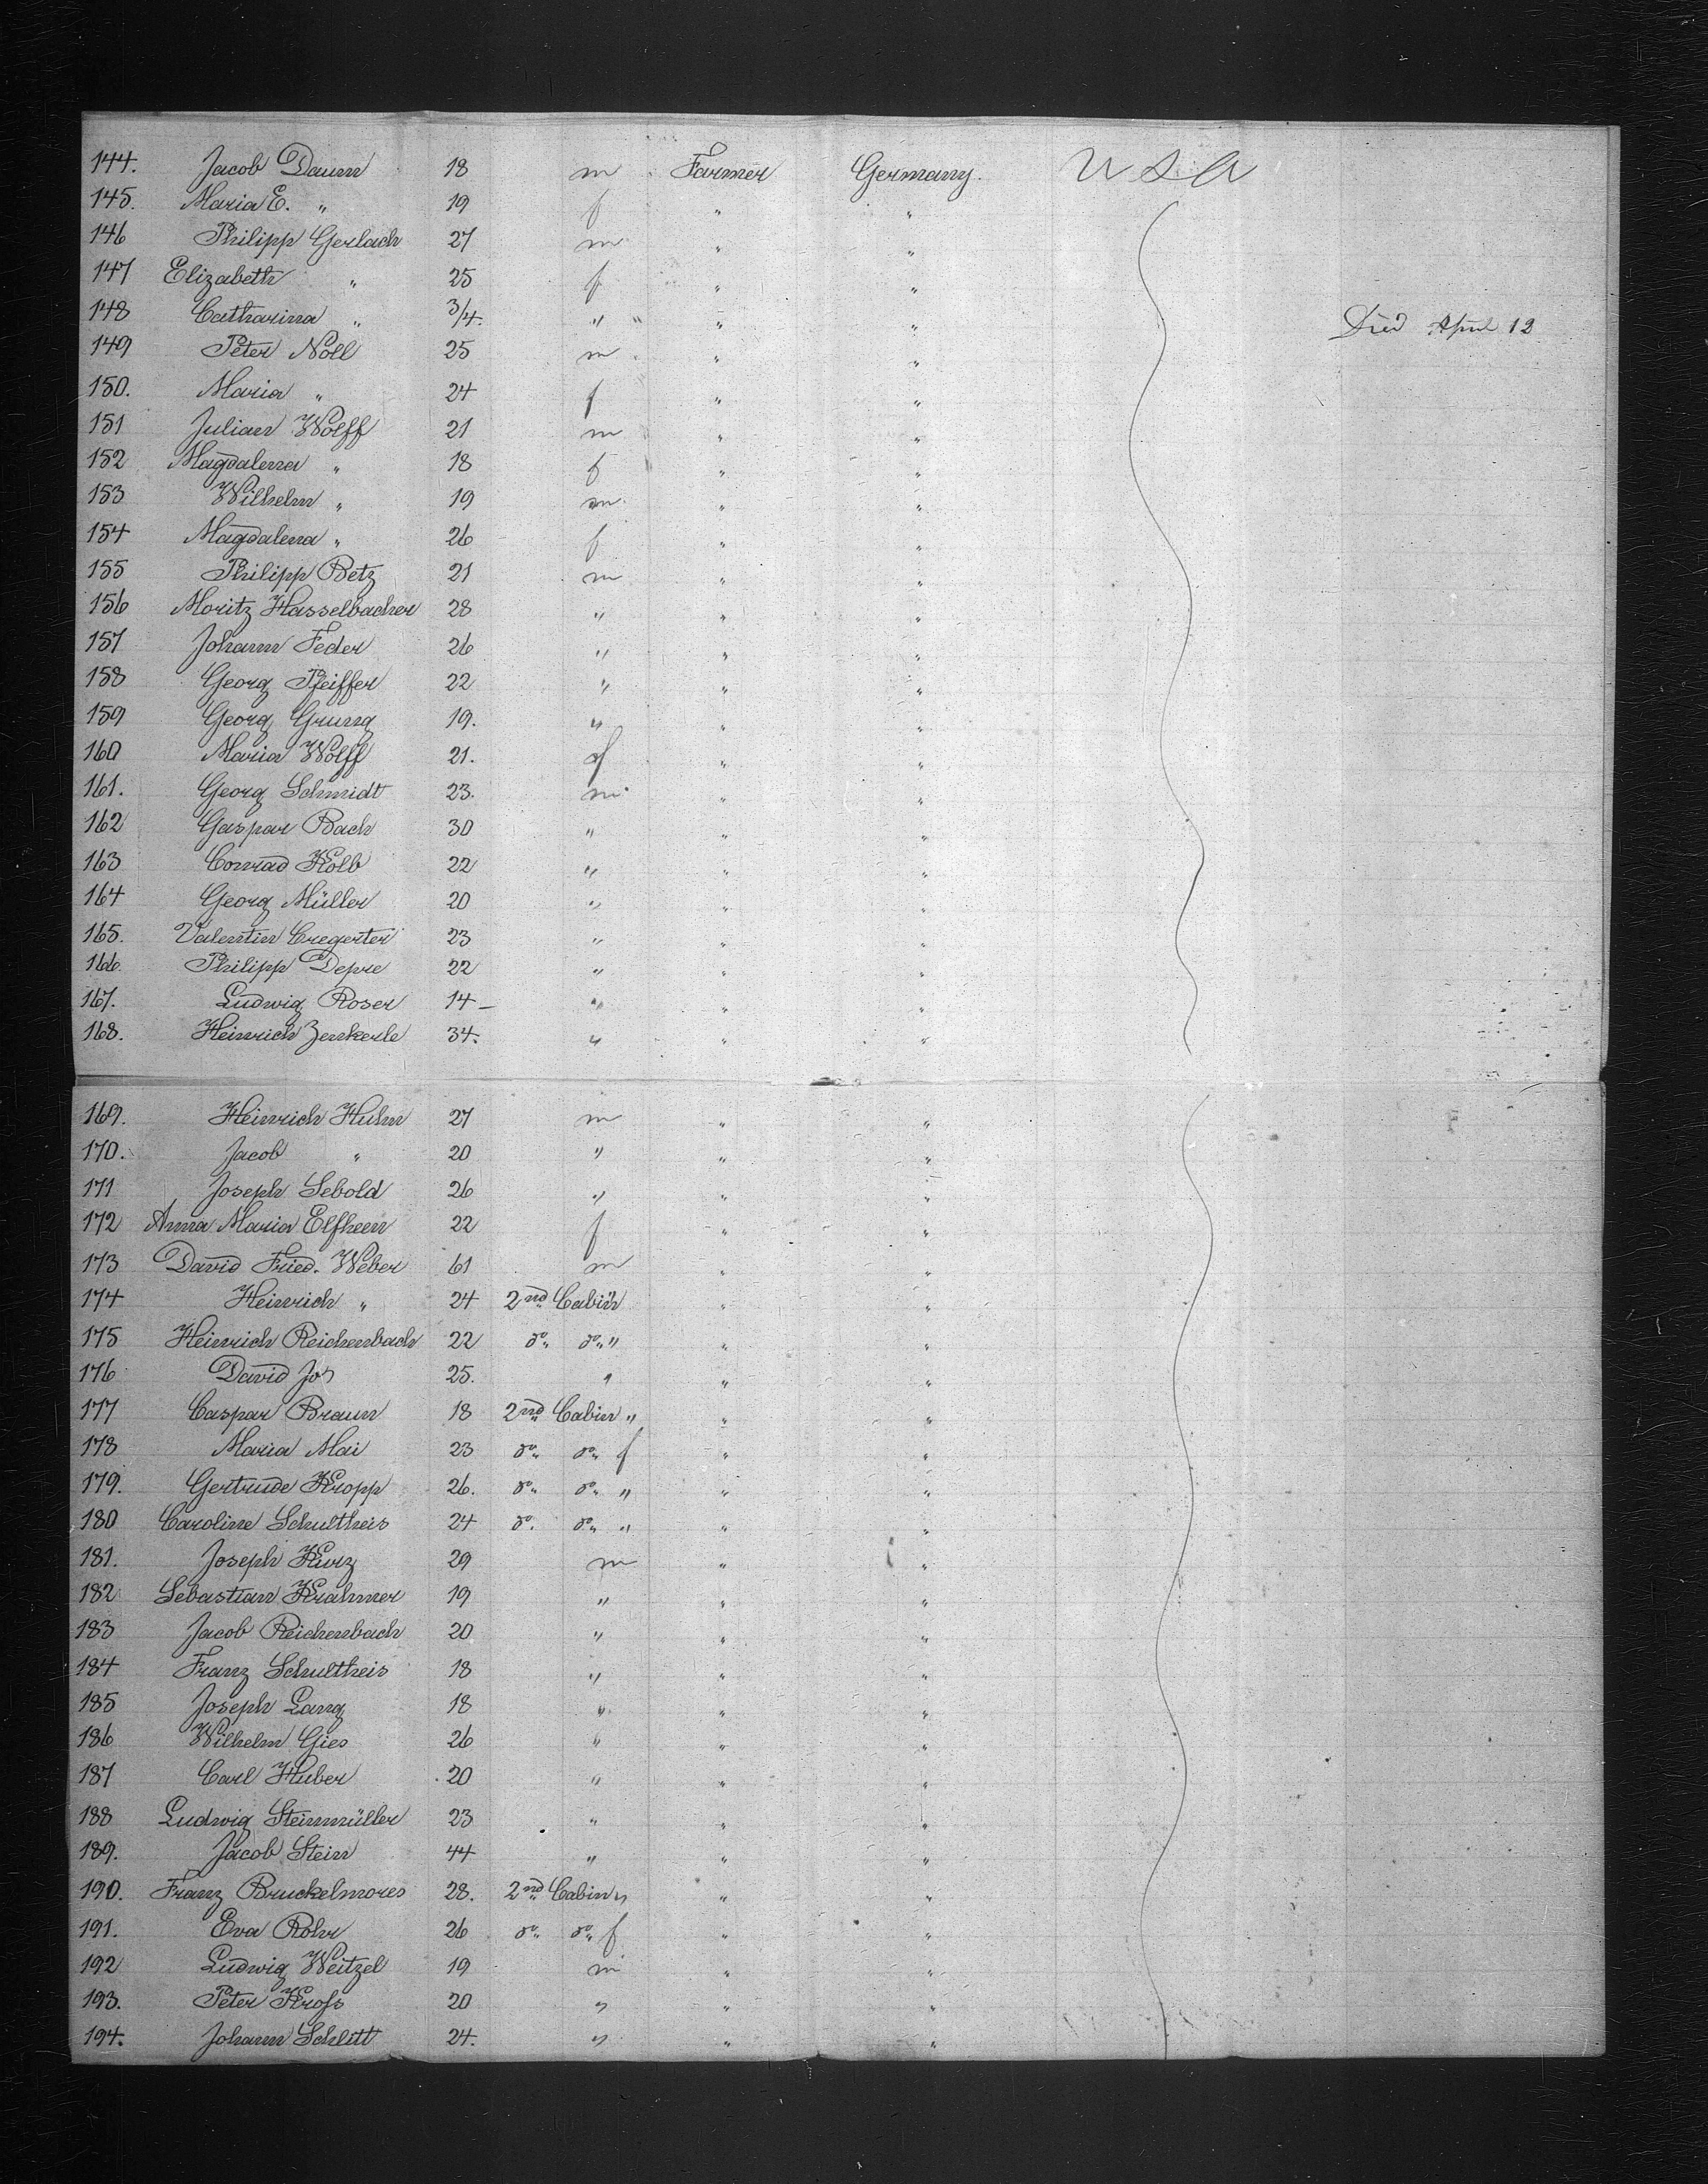 144. Jacob Daum 18 m Farmer Germany. U S A
145. Maria E. " 19 f " "
146 Philipp Gerlach 27 m " "
147 Elizabeth " 25 f " "
148 Catharina " 3/4. " " " Died April 12
149 Peter Noll 25 m " "
150. Maria " 24 f " "
151 Julian Wolff 21 m " "
152 Magdalena " 18 f " "
153 Wilhelm " 19 m " "
154 Magdalena " 26 f " "
155 Philipp Betz 21 m " "
156 Moritz Hasselbacher 28 " " "
157 Johann Feder 26 " " "
158 Georg Pfeiffer 22 " " "
159 Georg Grung 19. " " "
160 Maria Wolff 21. f " "
161. Georg Schmidt 23. m " "
162 Gaspar Bach 30 " " "
163 Conrad Kolb 22 " " "
164 Georg Müller 20 " " "
165. Valentin Cregerter 23 " " "
166. Philipp Depre 22 " " "
167. Ludwig Roser 14 - " " "
168. Heinrich Zenkerle 34. " " "
169. Heinrich Huhn 27 m " "
170. Jacob " 20 " " "
171 Joseph Sebold 26 " " "
172 Anna Maria Elfheen 22 f " "
173 David Fried. Weber 61 m " "
174 Heinrich " 24 2nd Cabin " " "
175 Heinrich Reichenbach 22 do. do. " " "
176 David Jos 25. " " "
177 Caspar Braun 18 2nd Cabin " " "
178 Maria Mai 23 do. do. f " "
179. Gertrude Kropp 26. do. do. " " "
180 Caroline Schultheis 24 do. do. " " "
181. Joseph Kurz 29 m " "
182 Sebastian Krahmer 19 " " "
183 Jacob Reichenbach 20 " " "
184 Franz Schultheis 18 " " "
185 Joseph Lang 18 " " "
186 Wilhelm Gies 26 " " "
187 Carl Huber 20 " " "
188 Ludwig Steinmüller 23 " " "
189. Jacob Stein 44 " " "
190. Franz Bruckelmores 28. 2nd Cabin " " "
191. Eva Rohr 26 do. do. f " "
192 Ludwig Weitzel 19 m " "
193. Peter Kross 20 " " "
194. Johann Schlitt 24. " " "